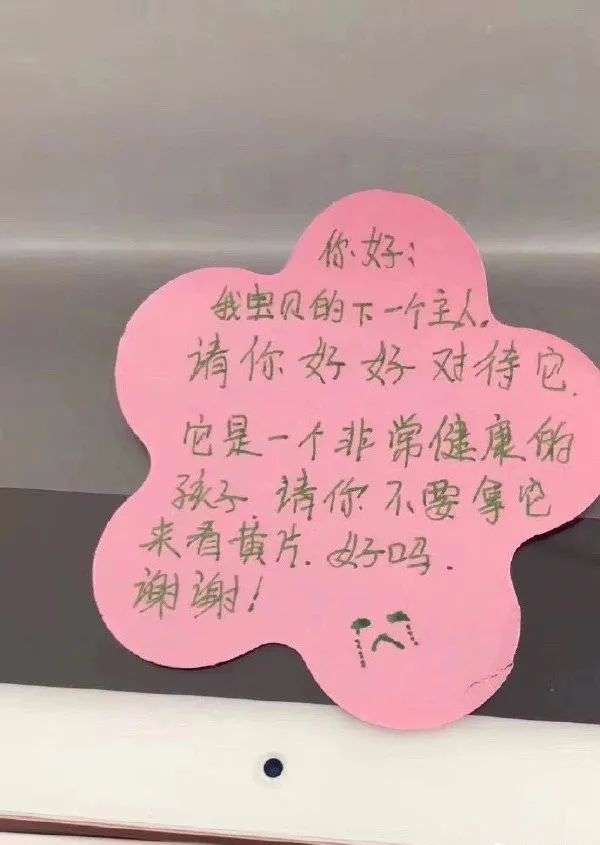 你好：
我宝贝的下一个主人，
请你好好对待它.
它是一个非常健康的
孩子.请你不要拿它
来看黄片.好吗.
谢谢!